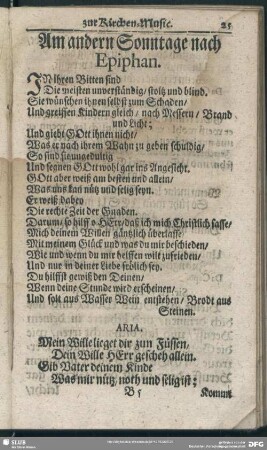 zur Kirchen-Music. 25
Am andern Sonntage nach
Epiphan.
IN Ihren Bitten sind
Die meisten unverständig/ stoltz und blind.
Sie wünschen ihnen selbst zum Schaden/
Und greiffen Kindern gleich/ nach Messern/ Brand
und Licht;
Und giebt GOtt ihnen nicht/
Was er nach ihrem Wahn zu geben schuldig/
So sind sie ungedultig
Und segnen GOtt wohl gar ins Angesicht.
GOtt aber weiß am besten und allein/
Was uns kan nütz und selig seyn.
Er weiß dabey
Die rechte Zeit der Gnaden.
Darum/ so hilff o HErr/ daß ich mich Christlich fasse/
Mich deinem Willen gäntzlich überlasse
Mit meinem Glück und was du mir beschieden/
Wie und wenn du mir helffen wilt zufrieden/
Und nur in deiner Liebe frölich sey.
Du hilffst gewiß den Deinen/
Wenn deine Stunde wird erscheinen/
Und solt aus Wasser Wein entstehen/ Brodt aus
Steinen.
ARIA.
Mein Wille lieget dir zun Füssen/
Dein Wille HErr gescheh allein.
Gib Vater deinem Kinde
Was mir nütz, noth und selig ist:
B 5 Kommt
SLUB